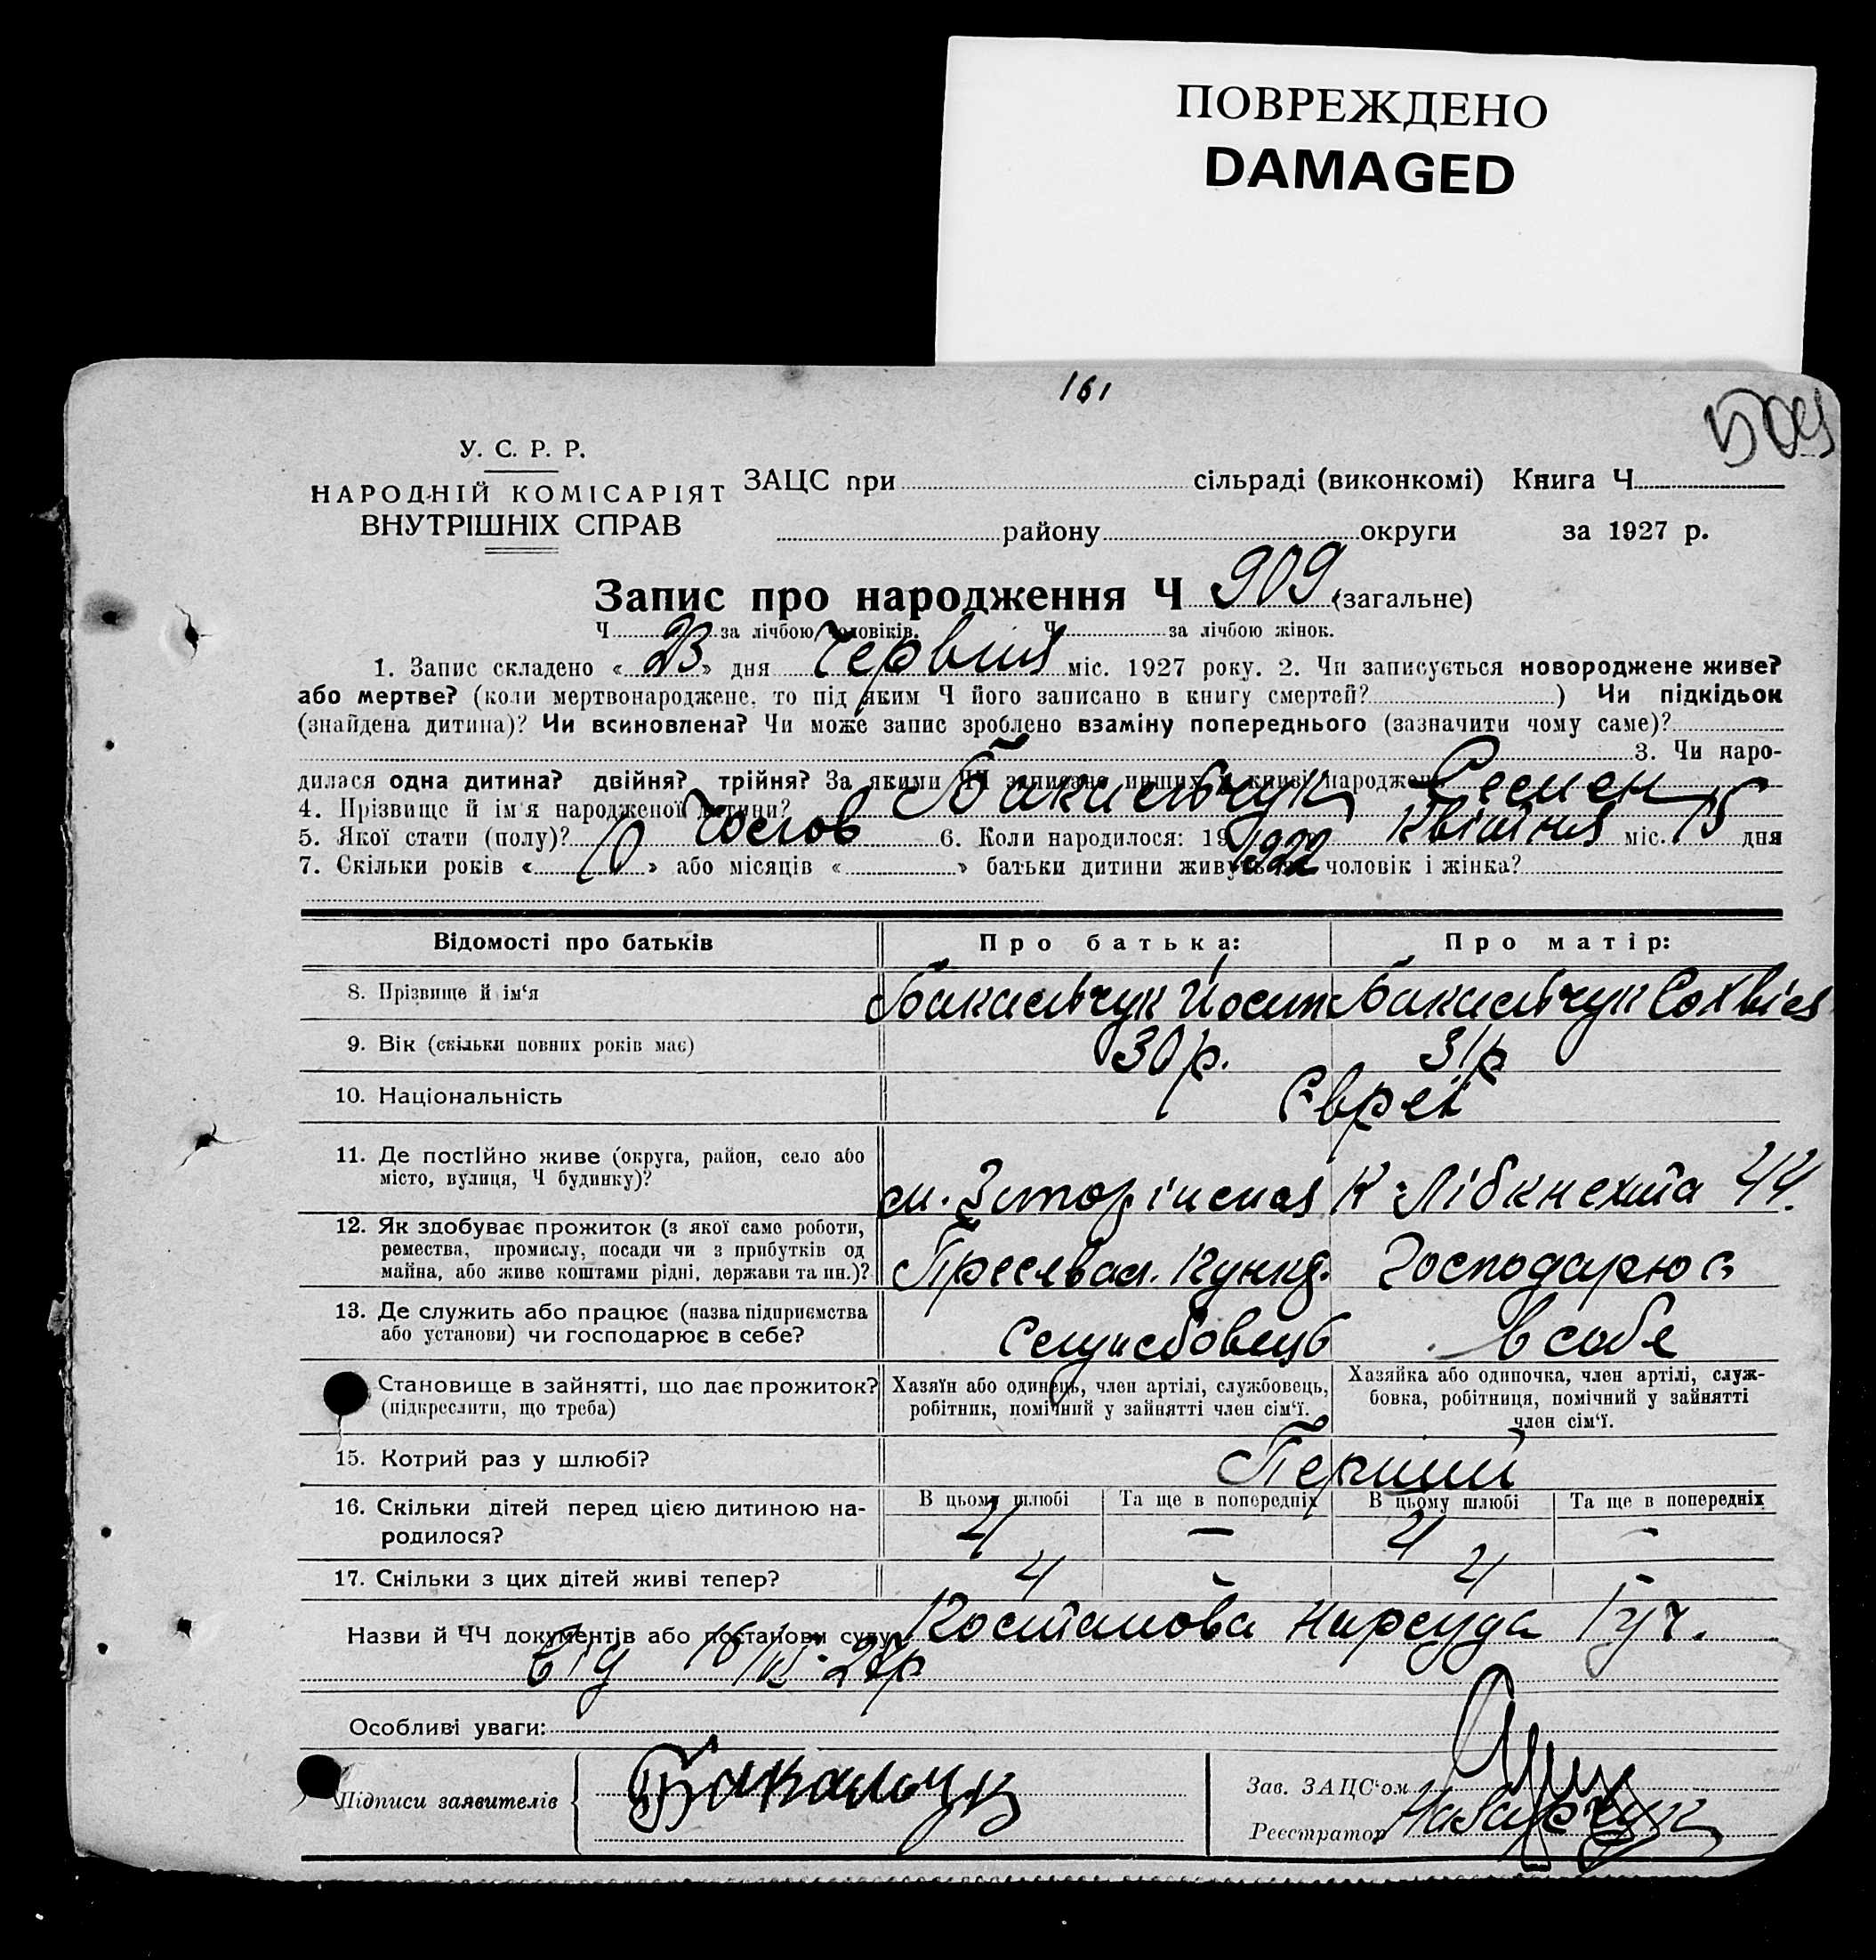 ПОВРЕЖДЕНО
DAMAGED
161
У. С. Р. Р.
НАРОДНІЙ КОМІСАРІЯТ
ВНУТРІШНІХ СПРАВ
ЗАЦС при сільраді (виконкомі) Книга Ч
району округи за 1927 р.
Запис про народження Ч 909 (загальне)
Ч за лічбою чоловіків. Ч за лічбою жінок.
1. Запис складено « 23 » дня Червня міс. 1927 року. 2. Чи записується новороджене живе?
або мертве? (коли мертвонароджене, то під яким Ч його записано в книгу смертей? ) Чи підкідьок
(знайдена дитина)? Чи всиновлена? Чи може запис зроблено взаміну попереднього (зазначити чому саме)?
3. Чи наро-
дилася одна дитина? двійня? трійня? За якими ЧЧ записано инших у книзі народжень
4. Прізвище й ім'я народженої дитини? Бакальчук Семен
5. Якої стати (полу)? Чолов 6. Коли народилося: 19 1922 Квітня міс. 15 дня
7. Скільки років « 10 » або місяців « » батьки дитини живуть як чоловік і жінка?
Відомості про батьків Про батька: Про матір:
8. Прізвище й ім'я Бакальчук Йосип Бакальчук Софія
9. Вік (скільки повних років має) 30 р. 31 р
10. Національність Євреї
11. Де постійно живе (округа, район, село або
місто, вулиця, Ч будинку)? К Лібкнехта 44.
12. Як здобуває прожиток (з якої саме роботи,
ремества, промислу, посади чи з прибутків од
майна, або живе коштами рідні, держави та ин.)? Господарює
13. Де служить або працює (назва підприємства
або установи) чи господарює в себе? Службовець в себе
Становище в зайнятті, що дає прожиток?
(підкреслити, що треба)
Хазяїн або одинець, член артілі, службовець,
робітник, помічний у зайнятті член сім'ї.
Хазяйка або одиночка, член артілі, служ-
бовка, робітниця, помічний у зайнятті
член сім'ї.
15. Котрий раз у шлюбі? Перший
16. Скільки дітей перед цією дитиною на-
родилося?
В цьому шлюбі Та ще в попередніх В цьому шлюбі Та ще в попередніх
4 — 4 —
17. Скільки з цих дітей живі тепер? 4 4
Назви й ЧЧ документів або постанови суду: Костанова Нарсуда 1 уч.
Від
Особливі уваги:
Підписи заявителів Бакальчук
Зав. ЗАЦС'ом
Реєстратор